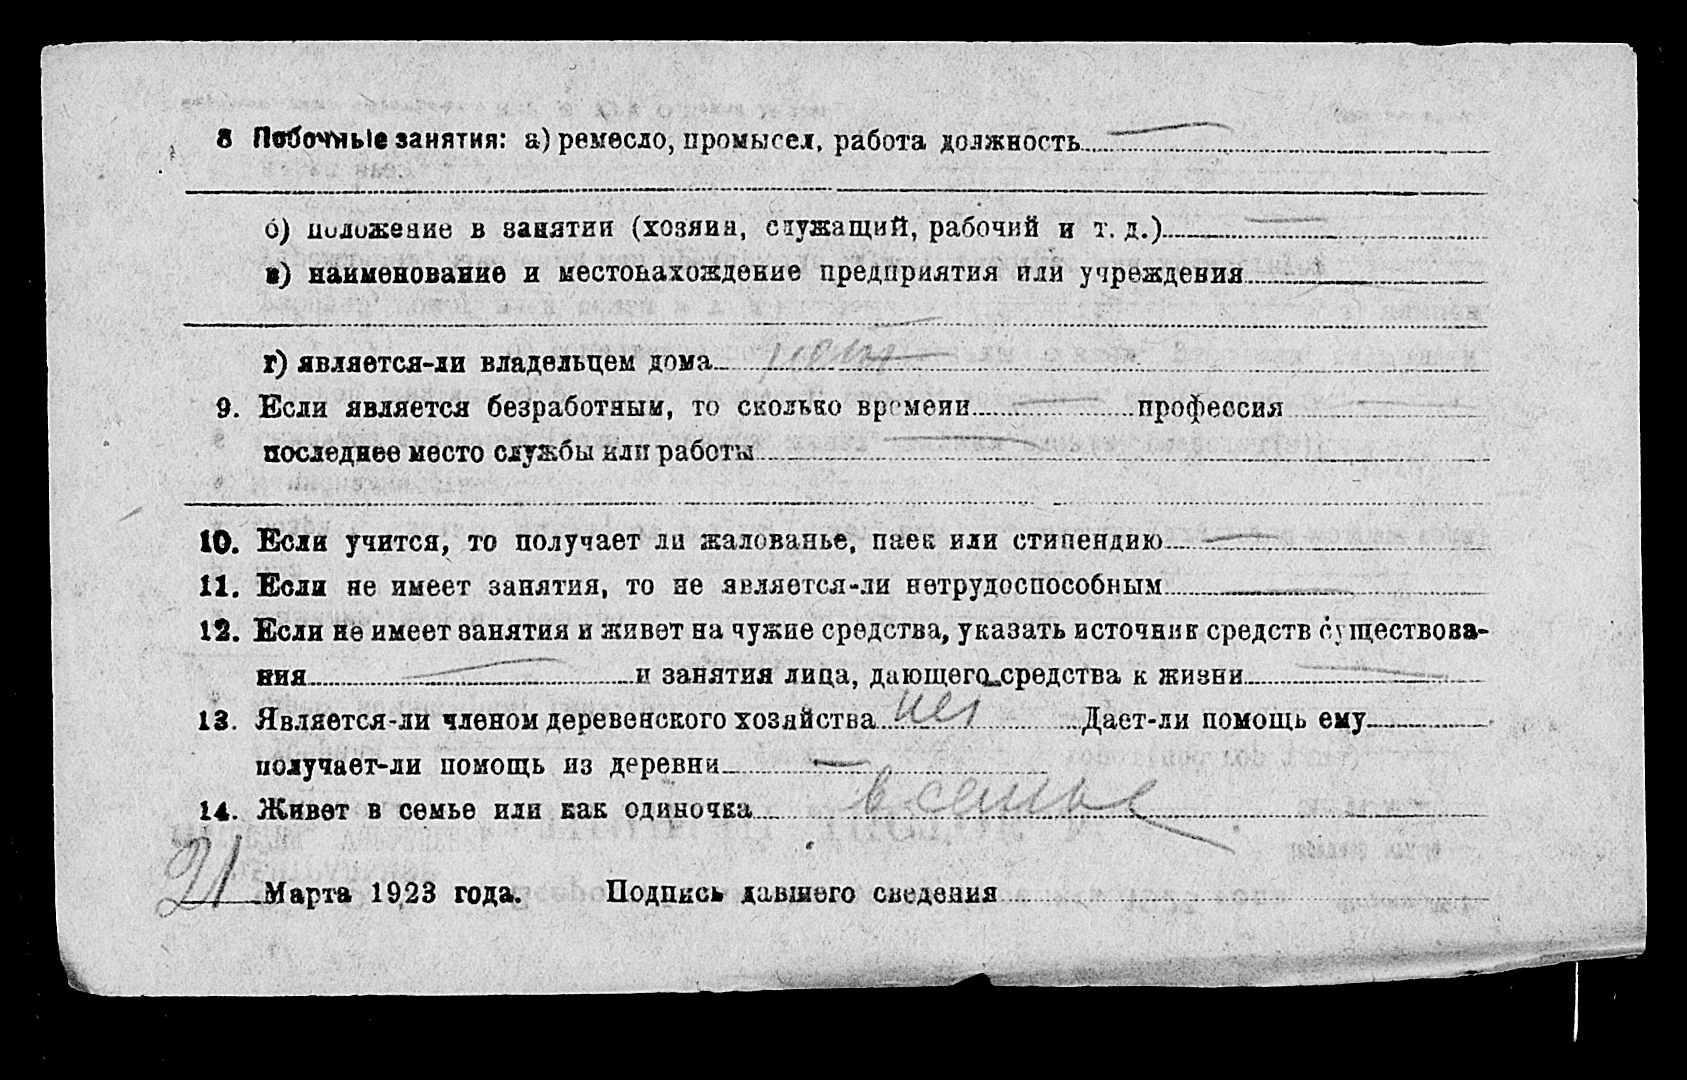 8 Побочные занятия: а) ремесло, промысел, работа должность —
б) положение в занятии (хозяин, служащий, рабочий и т. д.) —
в) наименование и местонахождение предприятия или учреждения —
г) является-ли владельцем дома
9. Если является безработным, то сколько времени — профессия
последнее место службы или работы —
10. Если учится, то получает ли жалованье, паек или стипендию —
11. Если не имеет занятия, то не является-ли нетрудоспособным —
12. Если не имеет занятия и живет на чужие средства, указать источник средств существова-
ния — и занятия лица, дающего средства к жизни —
13. Является-ли членом деревенского хозяйства нет Дает-ли помощь ему
получает-ли помощь из деревни —
14. Живет в семье или как одиночка в семье
21 Марта 1923 года. Подпись давшего сведения